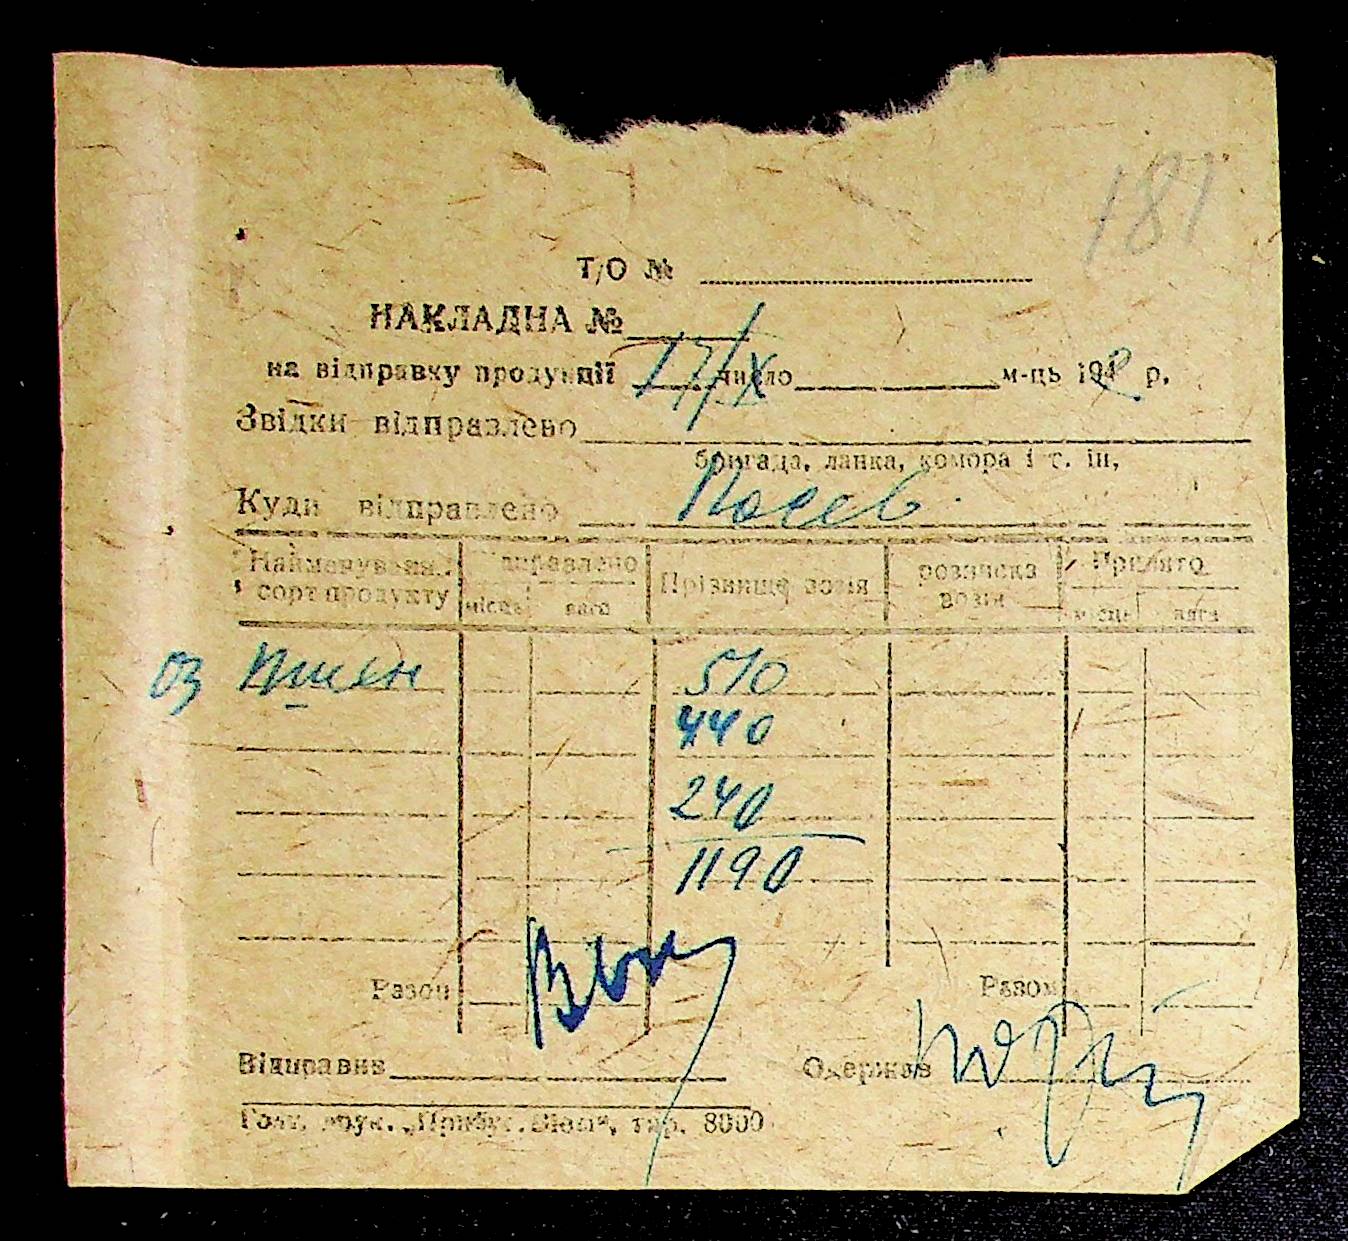 181
Т/О №
НАКЛАДНА №
на відправку продукції 17/X число м-ць 194 р.
Звідки відправлено
бригада, ланка, комора і т. ін,
Куди відправлено Посев
Найменування сорт продукту
Відправлено
місць вага
Прізвище возія
розписка возія
Прийнято
місць вага
оз пшен 510
440
240
1190
Разом Разом
Відправив Одержав
друк. тир. 8000